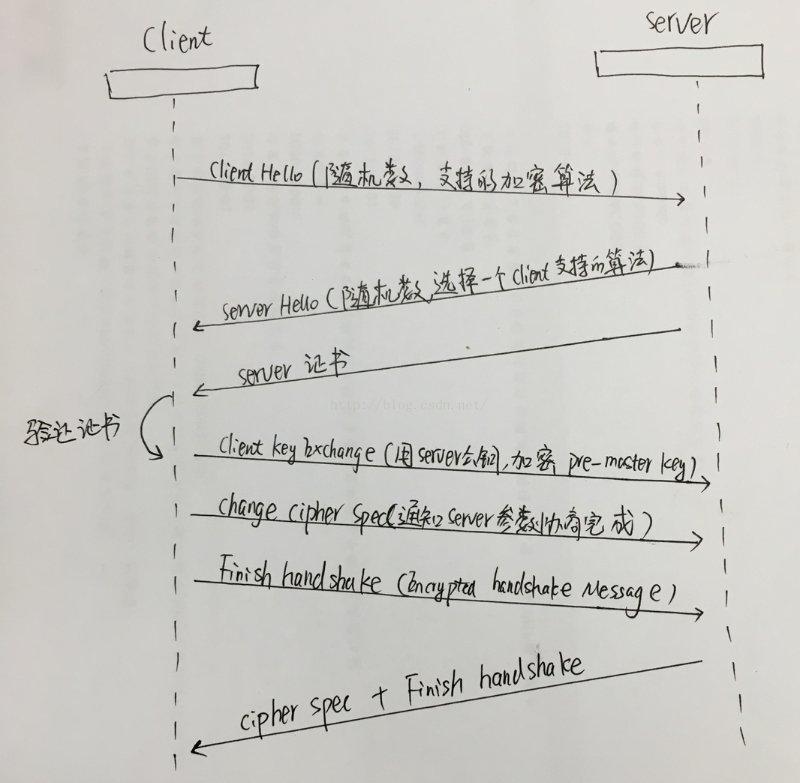 Client
server
Client Hello (随机数, 支持的加密算法)
server Hello (随机数, 选择一个Client支持的算法)
server 证书
http://blog.csdn.net/
验证证书
Client key Exchange (用server公钥, 加密 pre-master key)
change cipher spec(通知server参数协商完成)
Finish handshake (Encrypted handshake Message)
cipher spec + Finish handshake